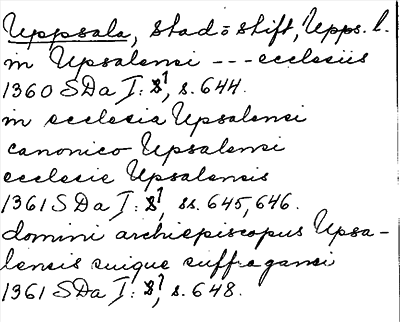 Uppsala, stad o stift, Upps. l.
in Upsalensi --- ecclesiis
1360 SDa I: 8¹, s. 644.
in ecclesia Upsalensi
canonico Upsalensi
ecclesie Upsalensis
1361 SDa I: 8¹, ss. 645, 646.
domini archiepiscopus Upsa-
lensis suique suffragansi
1361 SDa I: 8¹, s. 648.